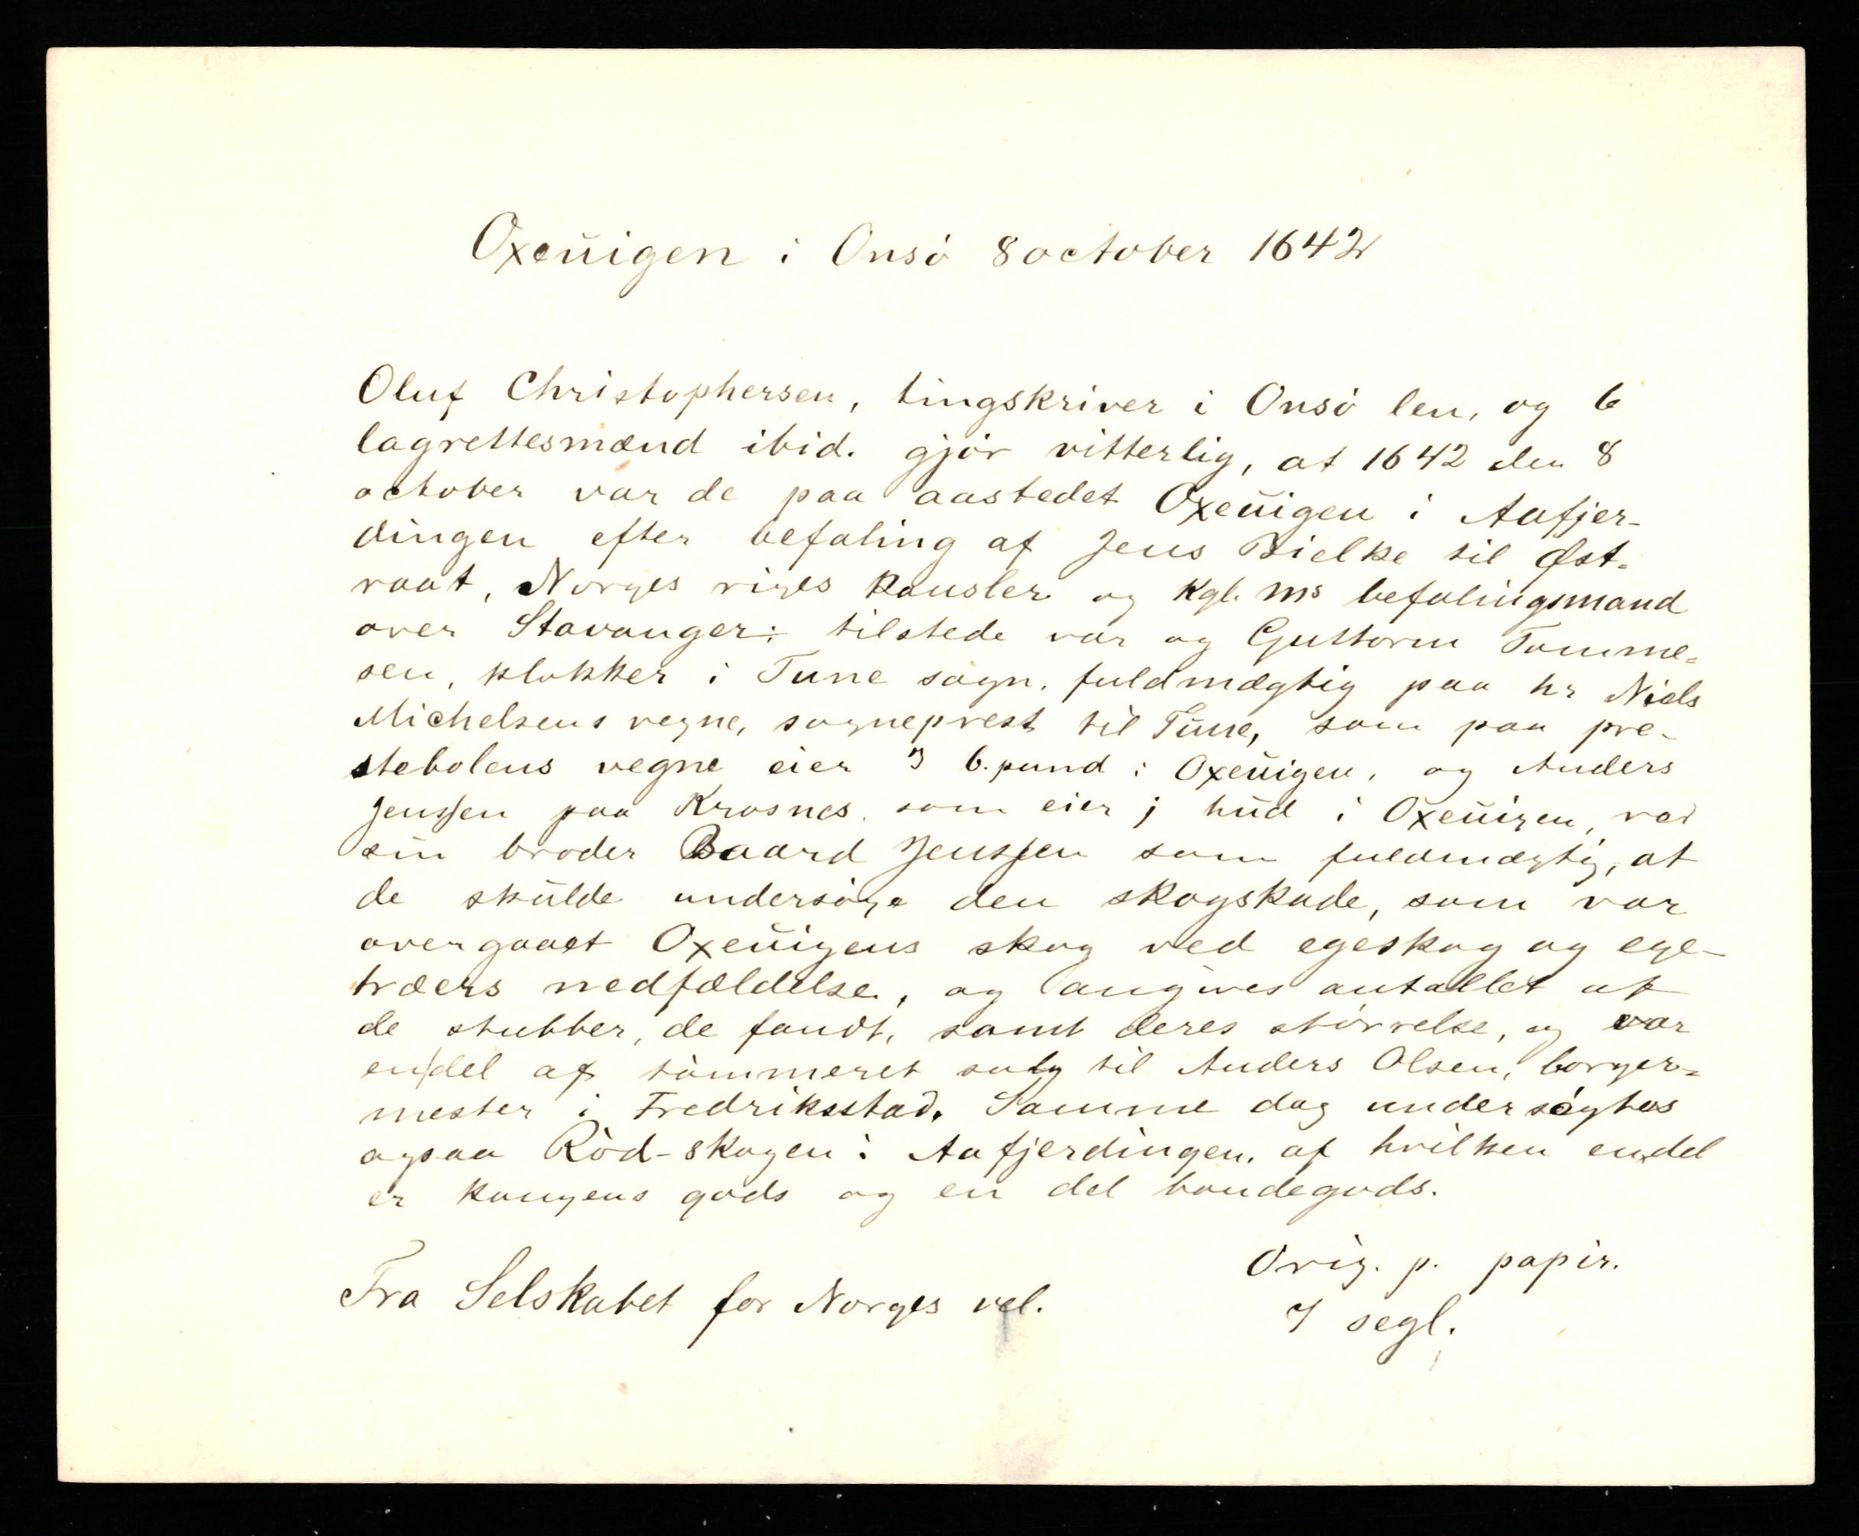 Oxeŭigen i Onsö 8 october 1642
Oluf Christophersen, tingskriver i Onsö len, og 6
lagrettesmænd ibid. gjör vitterlig, at 1642 den 8
october var de paa aastedet Oxeŭigen i Aafjer-
dingen efter befaling af Jens Bielke til Øst-
raat, Norges riges kansler og kgl. ms befalingsmand
over Stavanger: tilstede var og Guttorm Tomme-
sen, klokker i Tune sogn, fuldmægtig paa hr Niels
Michelsens vegne, sogneprest til Tŭne, som paa pre-
stebolens vegne eier 3 b.pund i Oxeŭigen, og Anders
Jenssen paa Krosnes, som eier j hŭd i Oxeŭigen, ved
sin broder Baard Jenssen som fuldmægtig, at
de skŭlde undersöge den skogskade, som var
overgaaet Oxeŭigens skog ved egeskog og ege-
træers nedfældelse, og angives antallet af
de stubber, de fandt, samt deres störrelse, og var
en del af tömmeret solg til Anders Olsen, borger-
mester i Fredriksstad. Samme dag undersögtes
ogsaa Röd-skogen i Aafjerdingen, af hvilken en del
er kongens gods og en del bondegods.
Orig. p. papir.
Fra Selskabet for Norges vel.
7 segl.